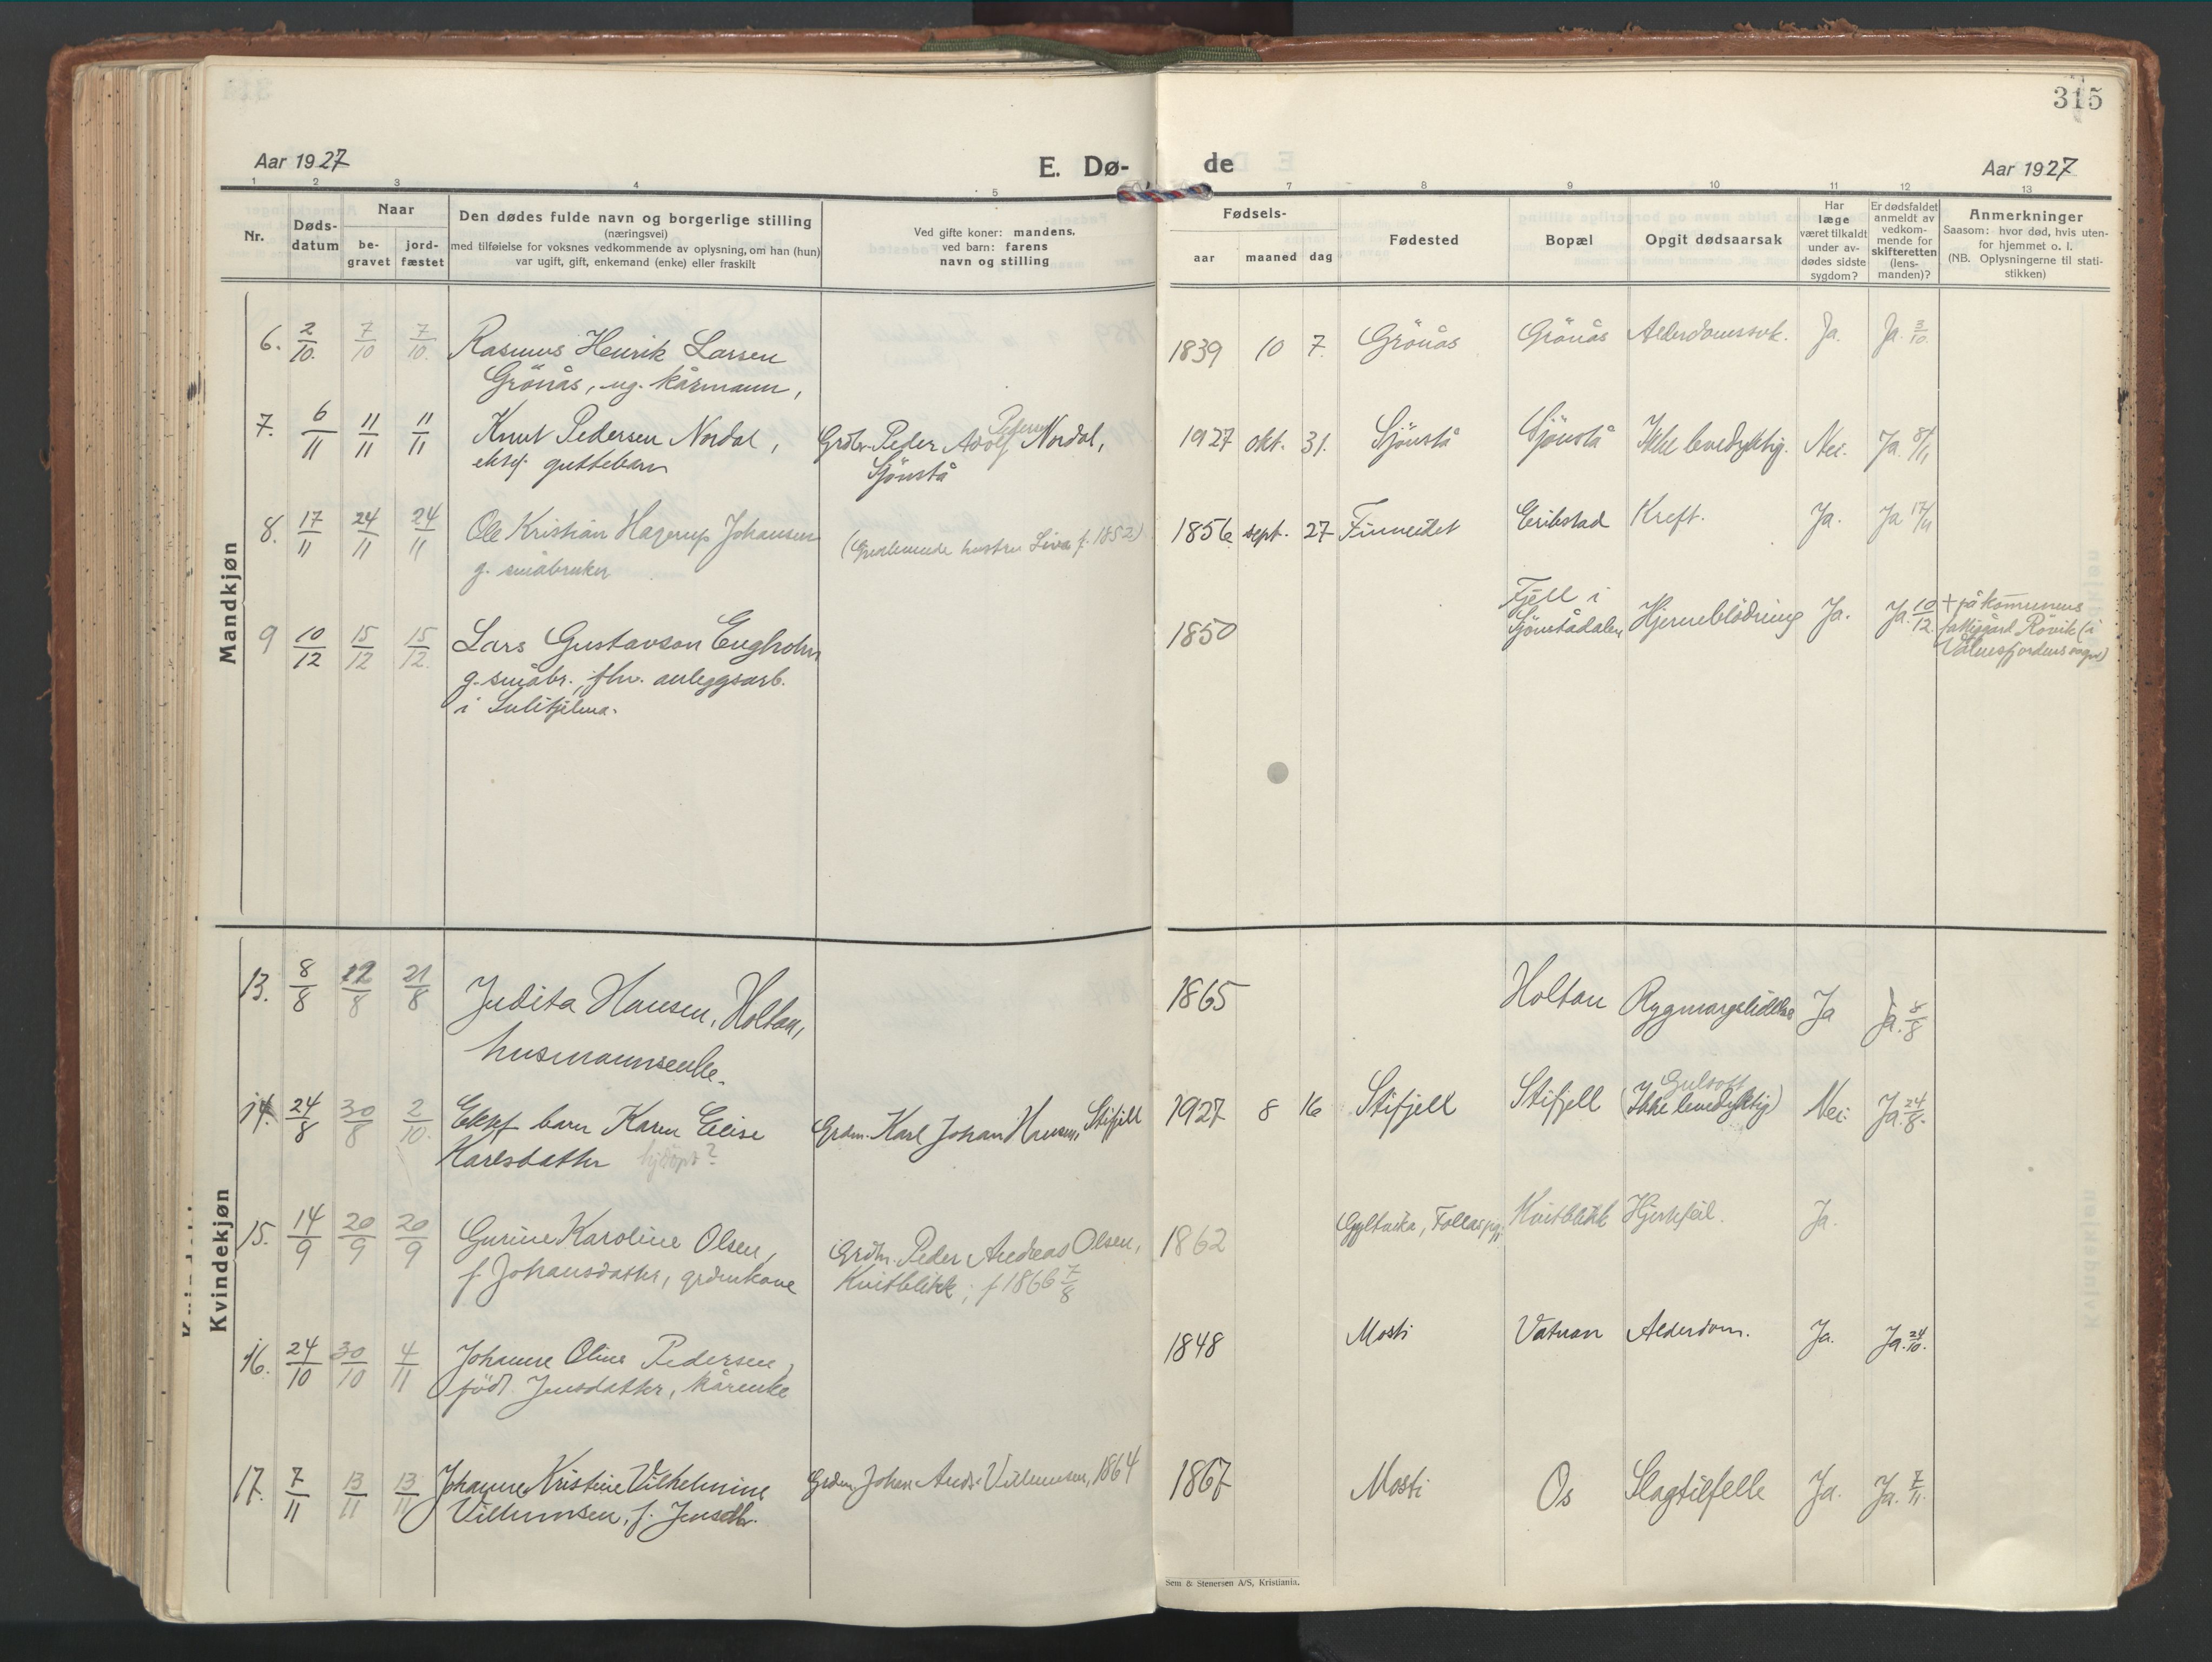 315
Aar 1927
E. Dø-
de
Aar 1927
1 2 3 4 5 7 8 9 10 11 12 13
Nr.
Døds-
datum
Naar
be-
gravet
jord-
fæstet
Den dødes fulde navn og borgerlige stilling
(næringsvei)
med tilføielse for voksnes vedkommende av oplysning, om han (hun)
var ugift, gift, enkemand (enke) eller fraskilt
Ved gifte koner: mandens,
ved barn: farens
navn og stilling
Fødsels-
aar maaned dag
Fødested
Bopæl
Opgit dødsaarsak
Har
læge
været tilkaldt
under av-
dødes sidste
sygdom?
Er dødsfaldet
anmeldt av
vedkom-
mende for
skifteretten
(lens-
manden)?
Anmerkninger
Saasom: hvor død, hvis uten-
for hjemmet o. l.
(NB. Oplysningerne til stati-
stikken)
Mandkjøn
6. 2/10. 7/10 7/10. Rasmus Henrik Larsen 1839 10 7. Grönås Grönås Alderdomssvk. Ja. Ja. 3/10.
Grönås, ug. kårmann,
7. 6/11 11/11 11/11 Knut Pedersen Nordal, Grdbr. Peder Adolf Pedersen Nordal, 1927 okt. 31. Sjönstå Sjönstå Ikke levedyktig. Nei. Ja. 8/11
ektef. guttebarn Sjönstå
8. 17/11 24/11 24/11 Ole Kristian Hagerup Johansen (Gjenlevende hustru Liva f. 1852) 1856 sept. 27 Finneidet Erikstad Kreft. Ja. Ja 17/11
g. småbruker
9 10/12 15/12 15/12. Lars Gustavson Engholm 1850 Fjell i Sjönstådalen Hjerneblödning Ja. Ja. 10/12. + på kommunens
g. småbr., fhv. anleggsarb. fattiggård Rövik (i
i Sulitjelma. Valnesfjordens sogn)
Kvindekjøn
13. 8/8 12/8 21/8 Judita Hansen, Holtan, 1865 Holtan Rygmargslidelse Ja Ja. 8/8
husmannsenke.
14. 24/8 30/8 2/10. Ektf barn Karen Elise Grdm. Karl Johan Hansen, Stifjell 1927 8 16 Stifjell Stifjell Gulsott (Ikke levedyktig) Nei. Ja. 24/8.
Karlsdatter hjdöpt?
15. 14/9 20/9 20/9 Gurine Karoline Olsen, Grdm. Peder Andreas Olsen, 1862 Gyltvika, Foldas pg. Kvitblikk Hjertefeil. Ja.
f. Johansdatter, grdmkone Kvitblikk; f 1866 7/8
16. 24/10 30/10 4/11 Johanne Oline Pedersen, 1848 Mosti Vatnan Alderdom. Ja. Ja. 24/10.
född. Jensdatter, kårenke
17. 7/11 13/11 13/11 Johanne Kristine Vilhelmine Grdm. Johan Andr. Villumsen, 1864 1867 Mosti Os Slagtilfelle Ja. Ja. 7/11.
Villumsen, f. Jensdtr.
Sem & Stenersen A/S, Kristiania.